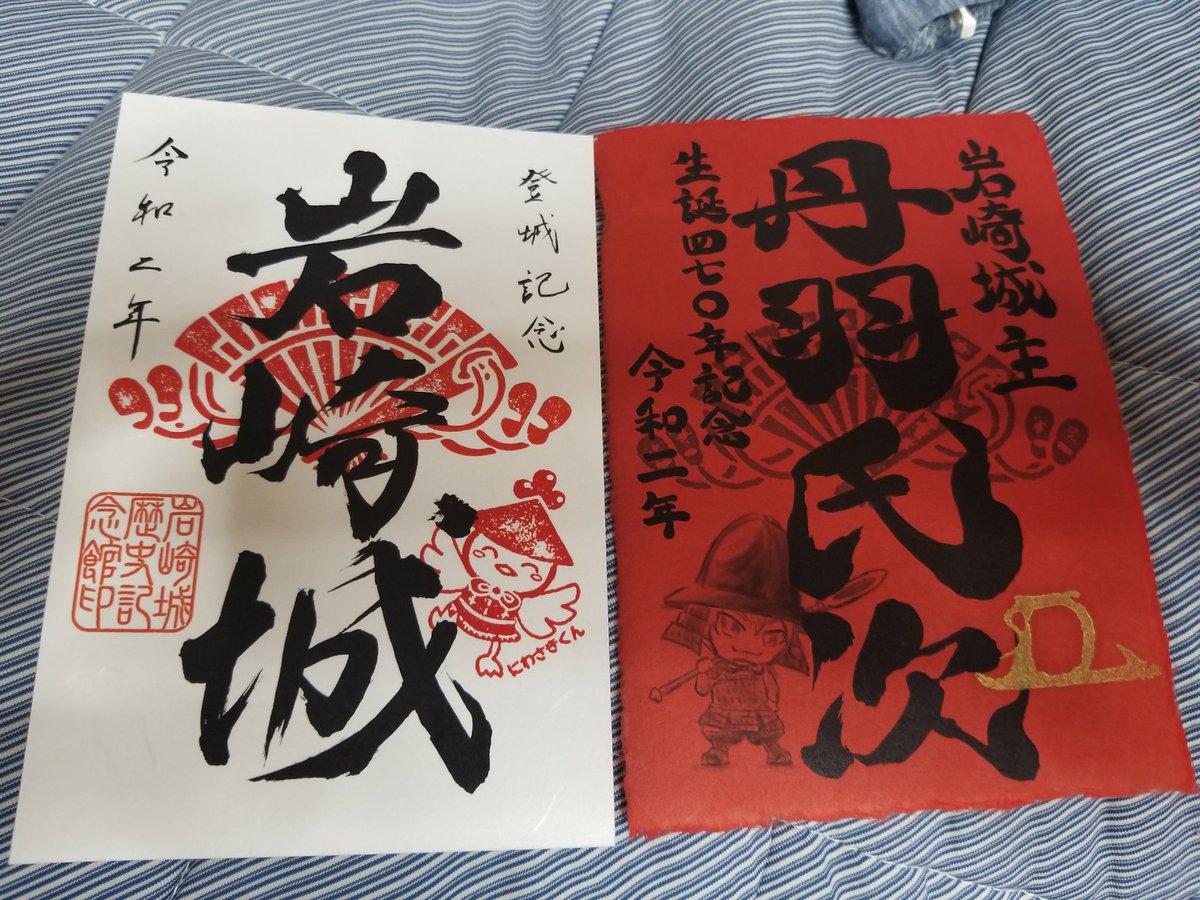 登城記念
岩崎城
令和二年
岩崎城
歴史記
念館印
にわさきくん
岩崎城主
丹羽氏次
生誕四七〇年記念
令和二年